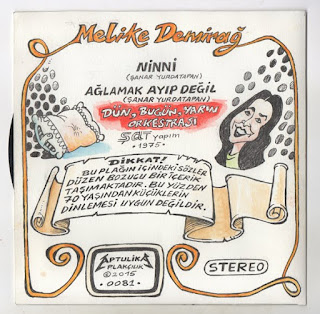 Melike Demirağ
NİNNİ
(ŞANAR YURDATAPAN)
AĞLAMAK AYIP DEĞİL
(ŞANAR YURDATAPAN)
DÜN, BUGÜN, YARIN
ORKESTRASI
ŞAT yapım
•1975•
DİKKAT!
BU PLAĞIN İÇİNDEKİ SÖZLER
DÜZEN BOZUCU BİR İÇERİK
TAŞIMAKTADIR. BU YÜZDEN
70 YAŞINDAN KÜÇÜKLERİN
DİNLEMESİ UYGUN DEĞİLDİR.
APTULİKA
PLAKÇILIK
©2015
•0081•
STEREO